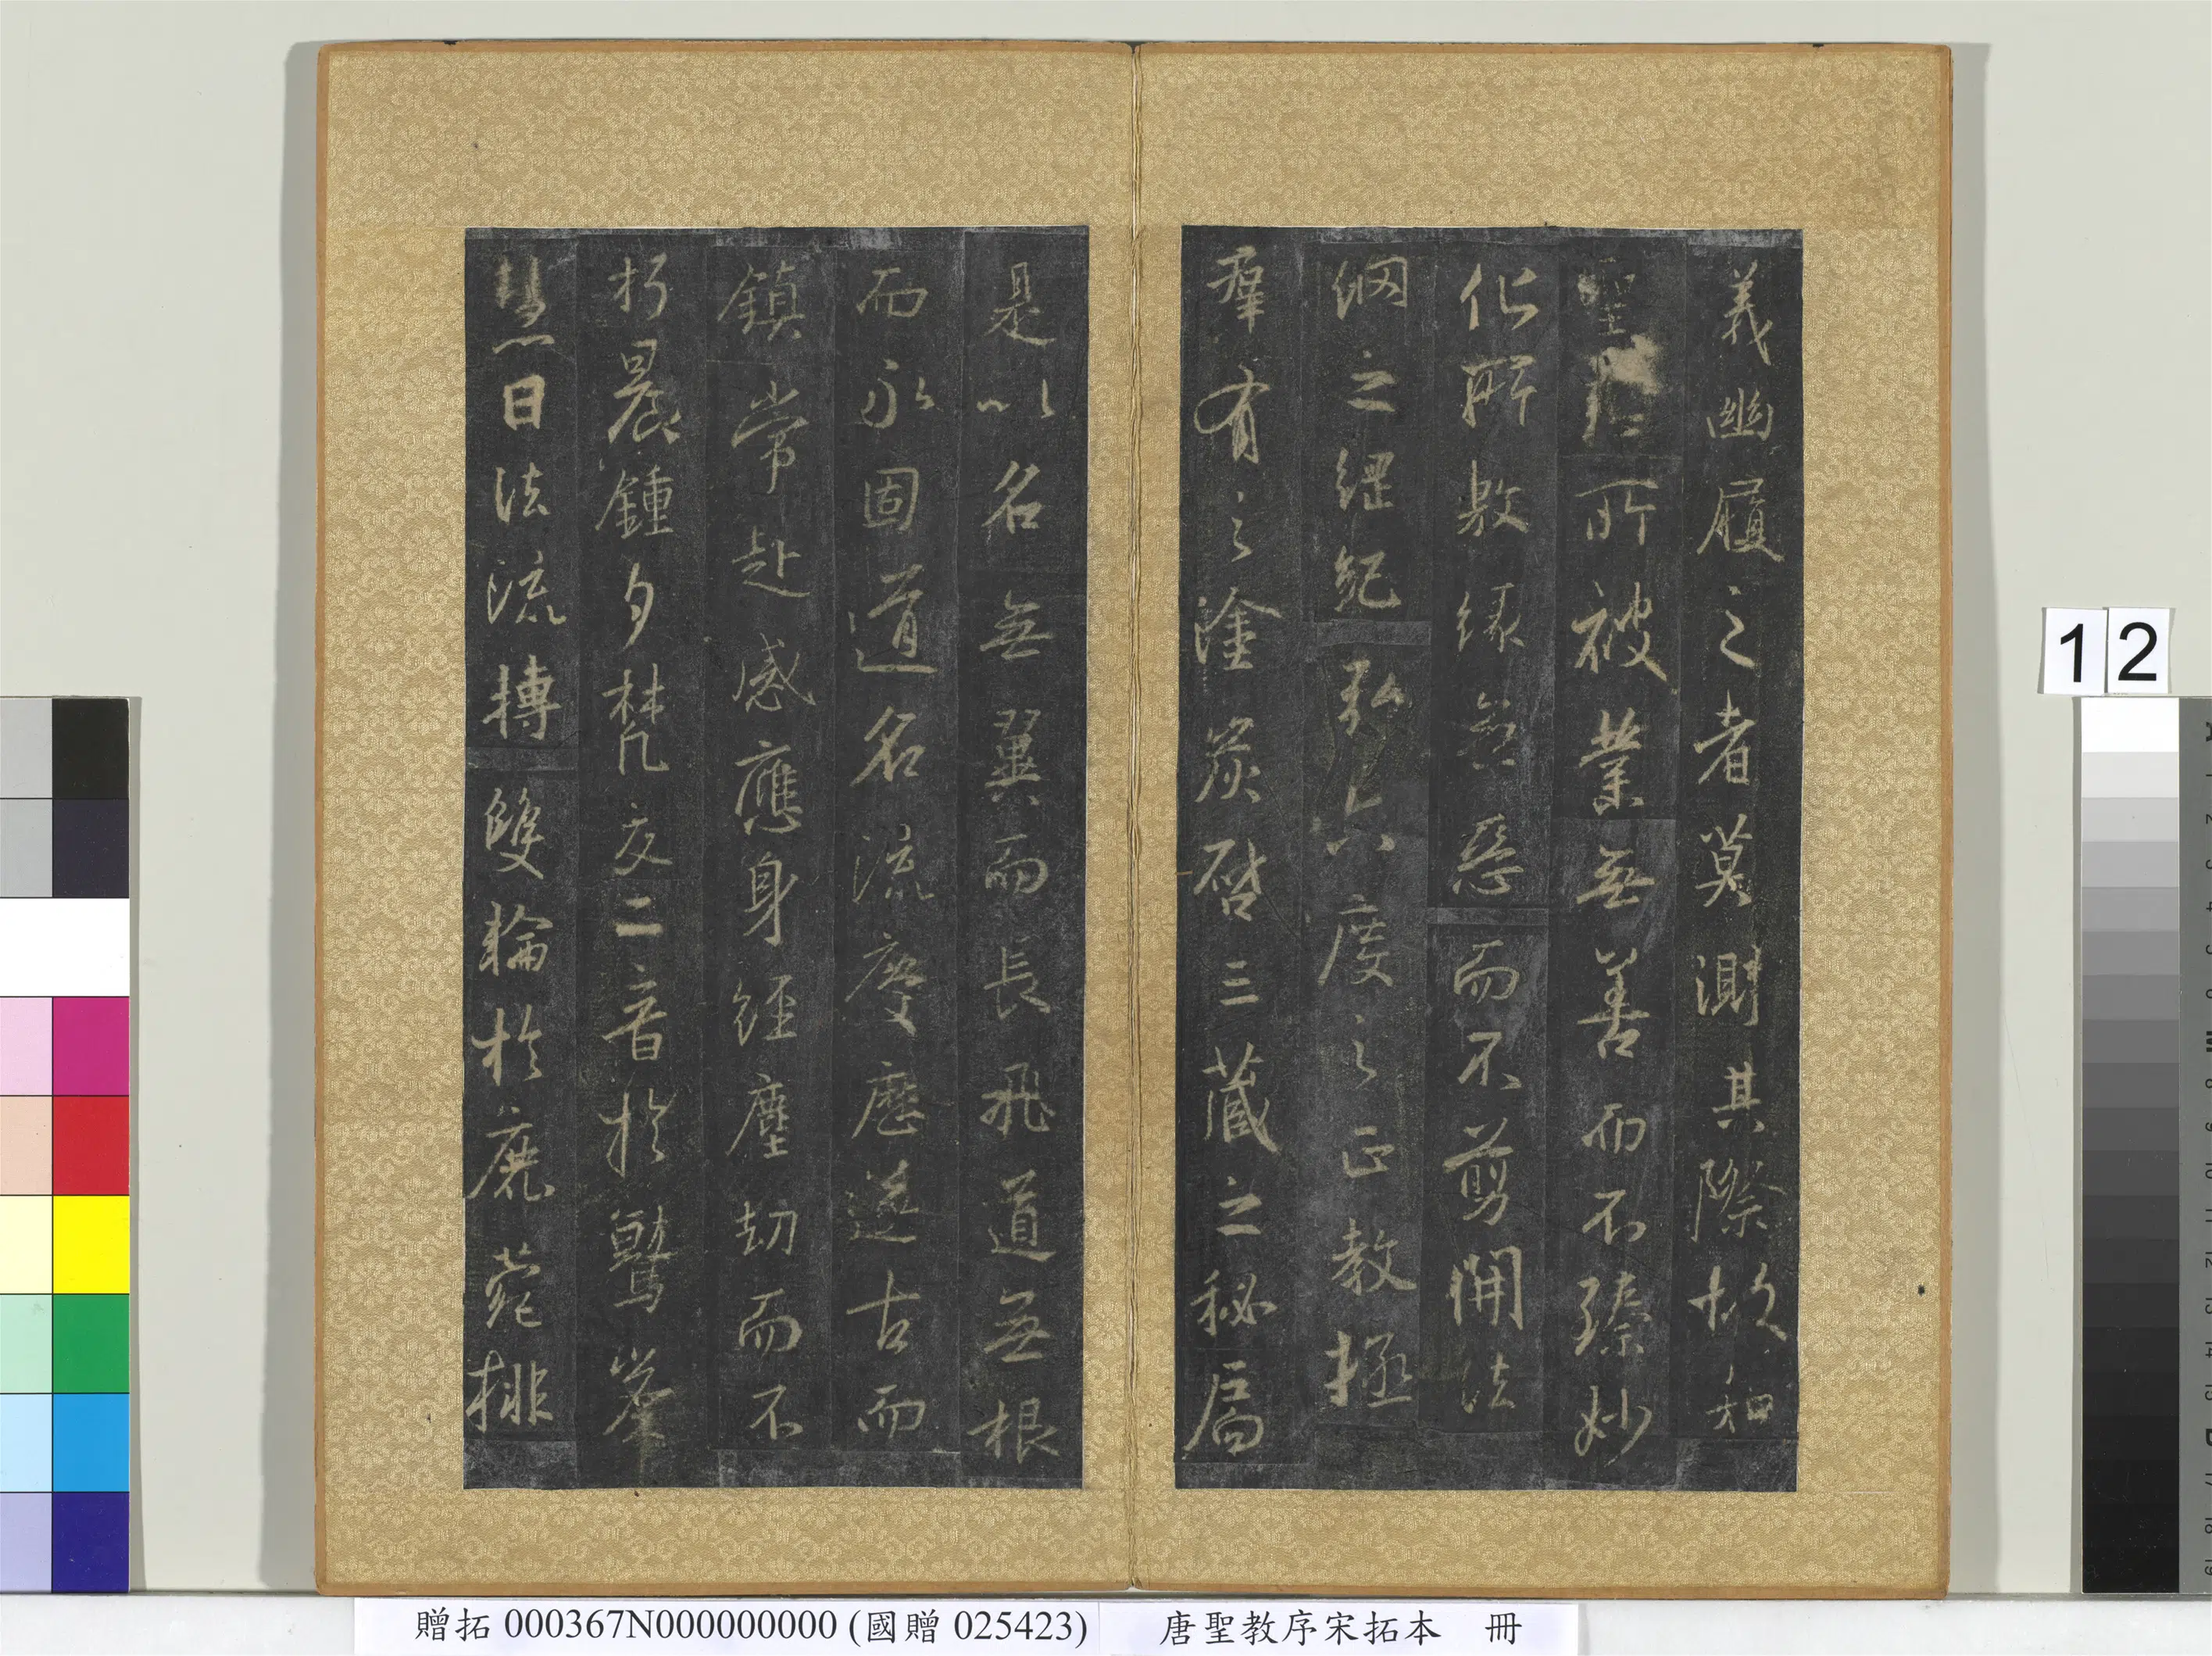 義幽履之者莫測其際故知
聖慈所被業無善而不臻妙
化所敷緣無惡而不剪開法
網之綱紀弘六度之正教拯
群有之塗炭啓三藏之秘扃
是以名無翼而長飛道無根
而永固道名流慶歷遂古而
鎮常赴感應身經塵劫而不
朽晨鍾夕梵交二音於鷲峯
慧日法流轉雙輪於鹿菀排
12
贈拓 000367N000000000 (國贈 025423)
唐聖教序宋拓本 冊